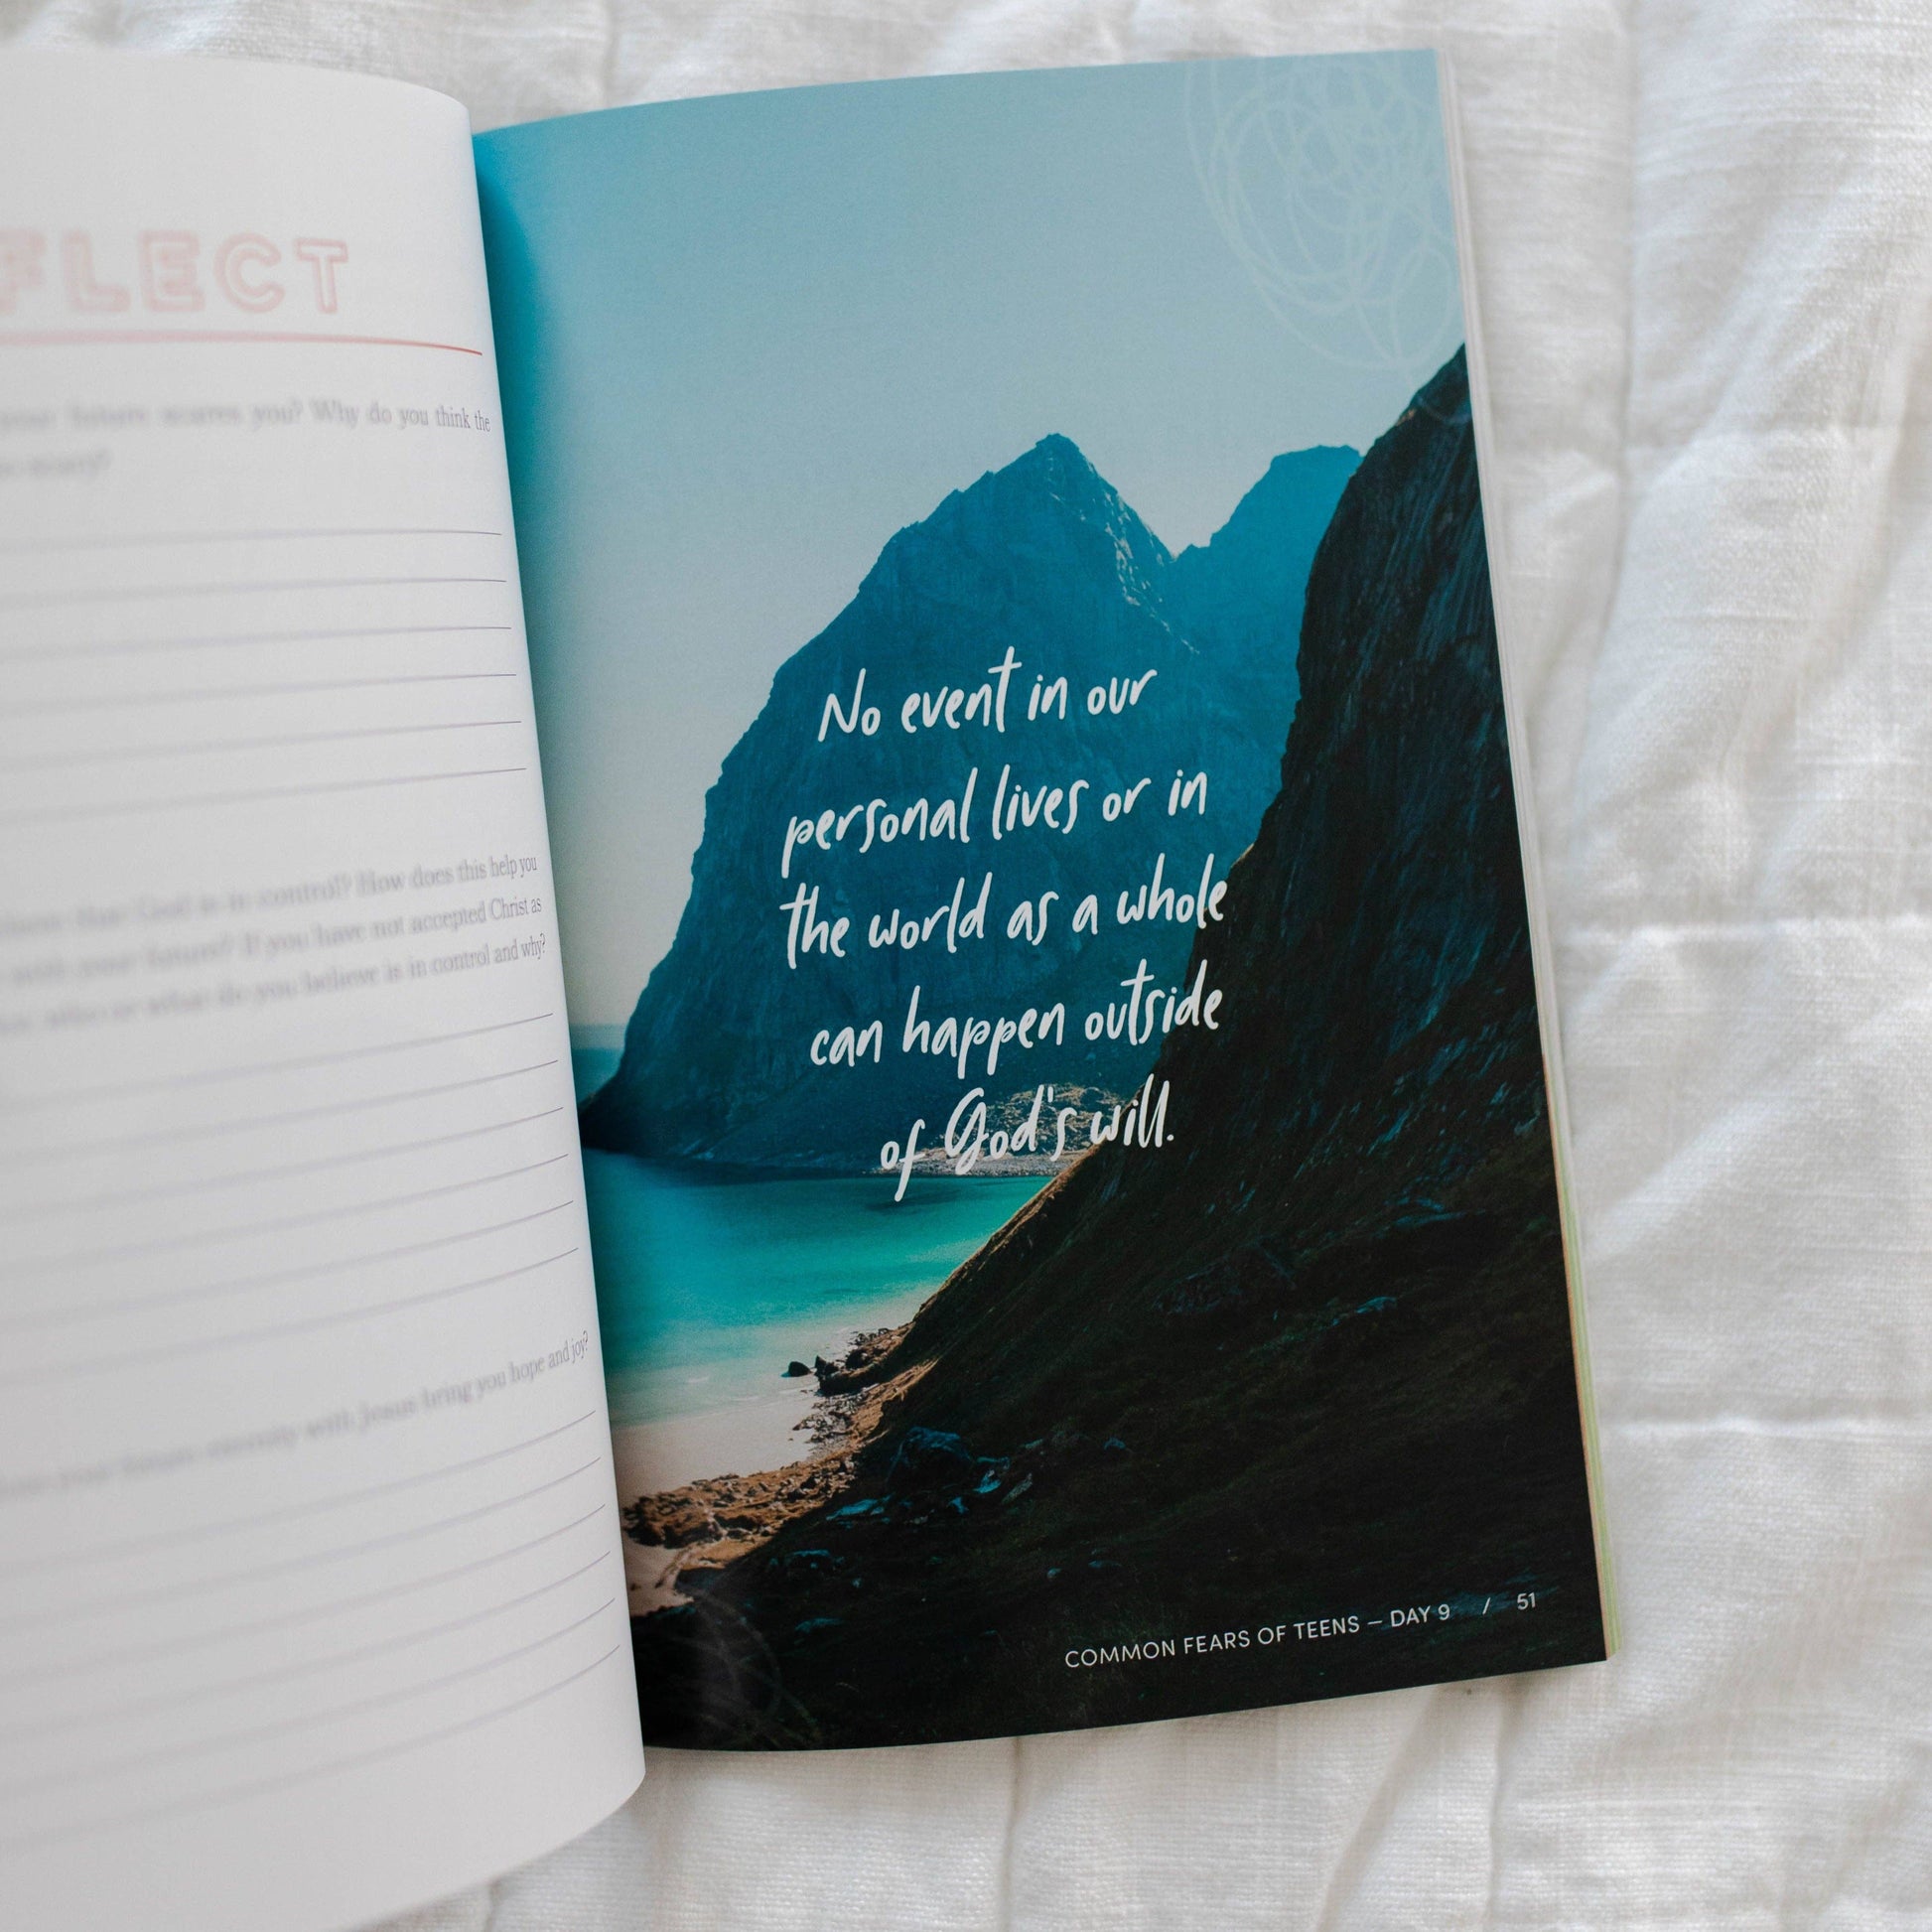 FLECT
your future scares you? Why do you think the
so scary?
that God is in control? How does this help you
with your future? If you have not accepted Christ as
who or what do you believe is in control and why?
your future eternity with Jesus bring you hope and joy?
No event in our
personal lives or in
the world as a whole
can happen outside
of God's will.
COMMON FEARS OF TEENS — DAY 9 / 51